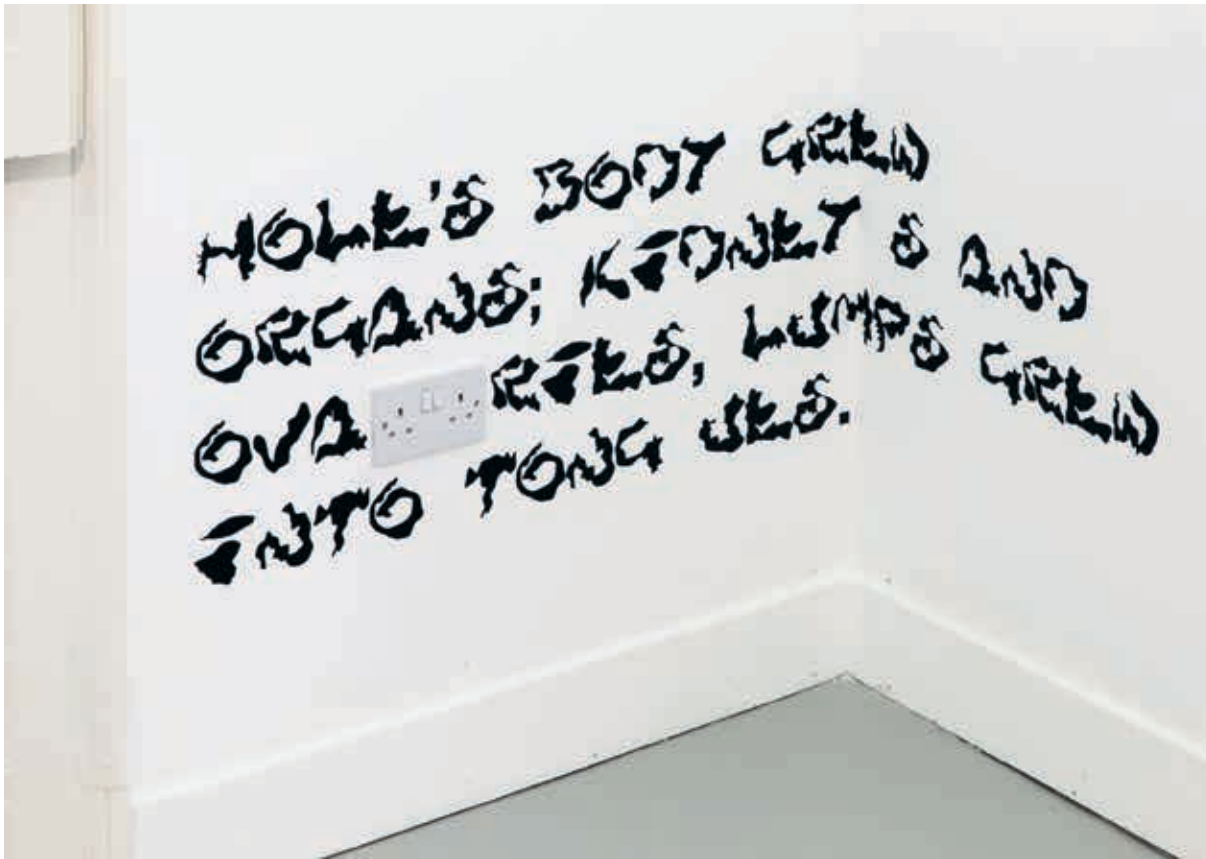 HOLE'S BODY GREW
ORGANS; KIDNEY S AND
OVA RIES, LUMPS GREW
INTO TONG UES.